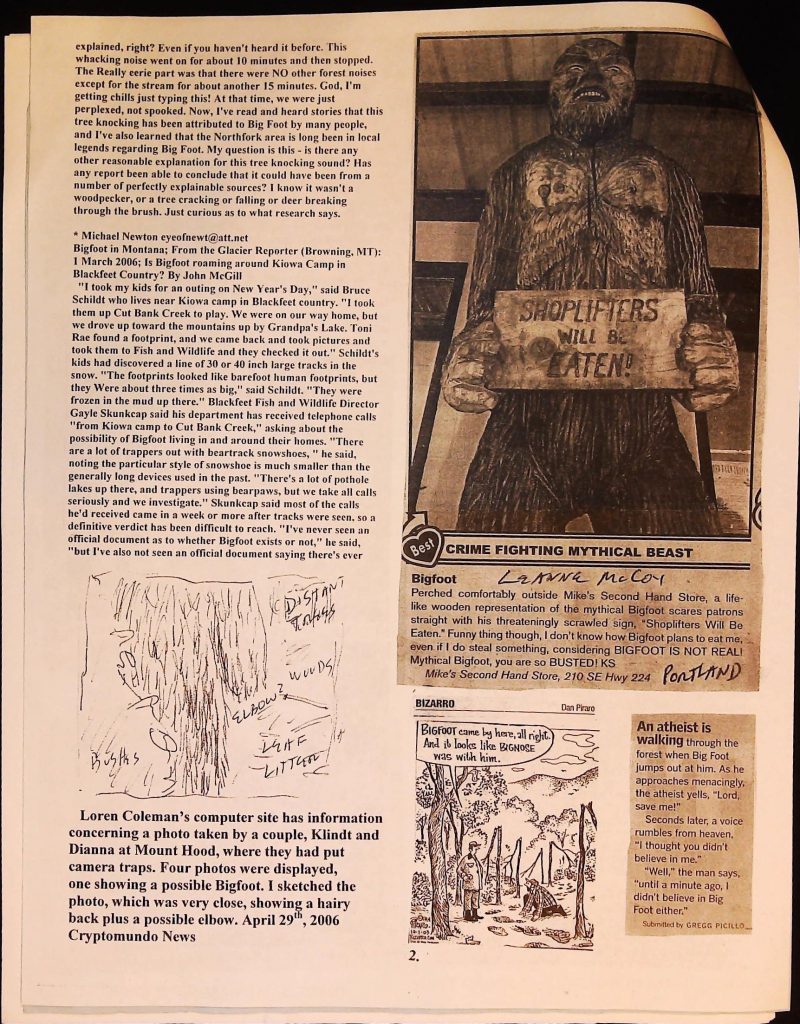 explained, right? Even if you haven't heard it before. This
whacking noise went on for about 10 minutes and then stopped.
The Really eerie part was that there were NO other forest noises
except for the stream for about another 15 minutes. God, I'm
getting chills just typing this! At that time, we were just
perplexed, not spooked. Now, I've read and heard stories that this
tree knocking has been attributed to Big Foot by many people,
and I've also learned that the Northfork area is long been in local
legends regarding Big Foot. My question is this - is there any
other reasonable explanation for this tree knocking sound? Has
any report been able to conclude that it could have been from a
number of perfectly explainable sources? I know it wasn't a
woodpecker, or a tree cracking or falling or deer breaking
through the brush. Just curious as to what research says.
* Michael Newton eyeofnewt@att.net
Bigfoot in Montana; From the Glacier Reporter (Browning, MT):
1 March 2006; Is Bigfoot roaming around Kiowa Camp in
Blackfeet Country? By John McGill
"I took my kids for an outing on New Year's Day," said Bruce
Schildt who lives near Kiowa camp in Blackfeet country. "I took
them up Cut Bank Creek to play. We were on our way home, but
we drove up toward the mountains up by Grandpa's Lake. Toni
Rae found a footprint, and we came back and took pictures and
took them to Fish and Wildlife and they checked it out." Schildt's
kids had discovered a line of 30 or 40 inch large tracks in the
snow. "The footprints looked like barefoot human footprints, but
they Were about three times as big," said Schildt. "They were
frozen in the mud up there." Blackfeet Fish and Wildlife Director
Gayle Skunkcap said his department has received telephone calls
"from Kiowa camp to Cut Bank Creek," asking about the
possibility of Bigfoot living in and around their homes. "There
are a lot of trappers out with beartrack snowshoes, " he said,
noting the particular style of snowshoe is much smaller than the
generally long devices used in the past. "There's a lot of pothole
lakes up there, and trappers using bearpaws, but we take all calls
seriously and we investigate." Skunkcap said most of the calls
he'd received came in a week or more after tracks were seen, so a
definitive verdict has been difficult to reach. "I've never seen an
official document as to whether Bigfoot exists or not," he said,
"but I've also not seen an official document saying there's ever
DISTANT
WOODS
ELBOW?
LEAF
LITTER
BUSHES
Loren Coleman's computer site has information
concerning a photo taken by a couple, Klindt and
Dianna at Mount Hood, where they had put
camera traps. Four photos were displayed,
one showing a possible Bigfoot. I sketched the
photo, which was very close, showing a hairy
back plus a possible elbow. April 29th, 2006
Cryptomundo News
SHOPLIFTERS
WILL BE
EATEN!
Best
CRIME FIGHTING MYTHICAL BEAST
Bigfoot LEANNE McCOY
Perched comfortably outside Mike's Second Hand Store, a life-
like wooden representation of the mythical Bigfoot scares patrons
straight with his threateningly scrawled sign, "Shoplifters Will Be
Eaten." Funny thing though, I don't know how Bigfoot plans to eat me,
even if I do steal something, considering BIGFOOT IS NOT REAL!
Mythical Bigfoot, you are so BUSTED! KS
Mike's Second Hand Store, 210 SE Hwy 224 PORTLAND
BIZARRO Dan Piraro
BIGFOOT came by here, all right.
And it looks like BIGNOSE
was with him.
2.
An atheist is
walking through the
forest when Big Foot
jumps out at him. As he
approaches menacingly,
the atheist yells, "Lord,
save me!"
Seconds later, a voice
rumbles from heaven,
"I thought you didn't
believe in me."
"Well," the man says,
"until a minute ago, I
didn't believe in Big
Foot either."
Submitted by GREGG PICILLO